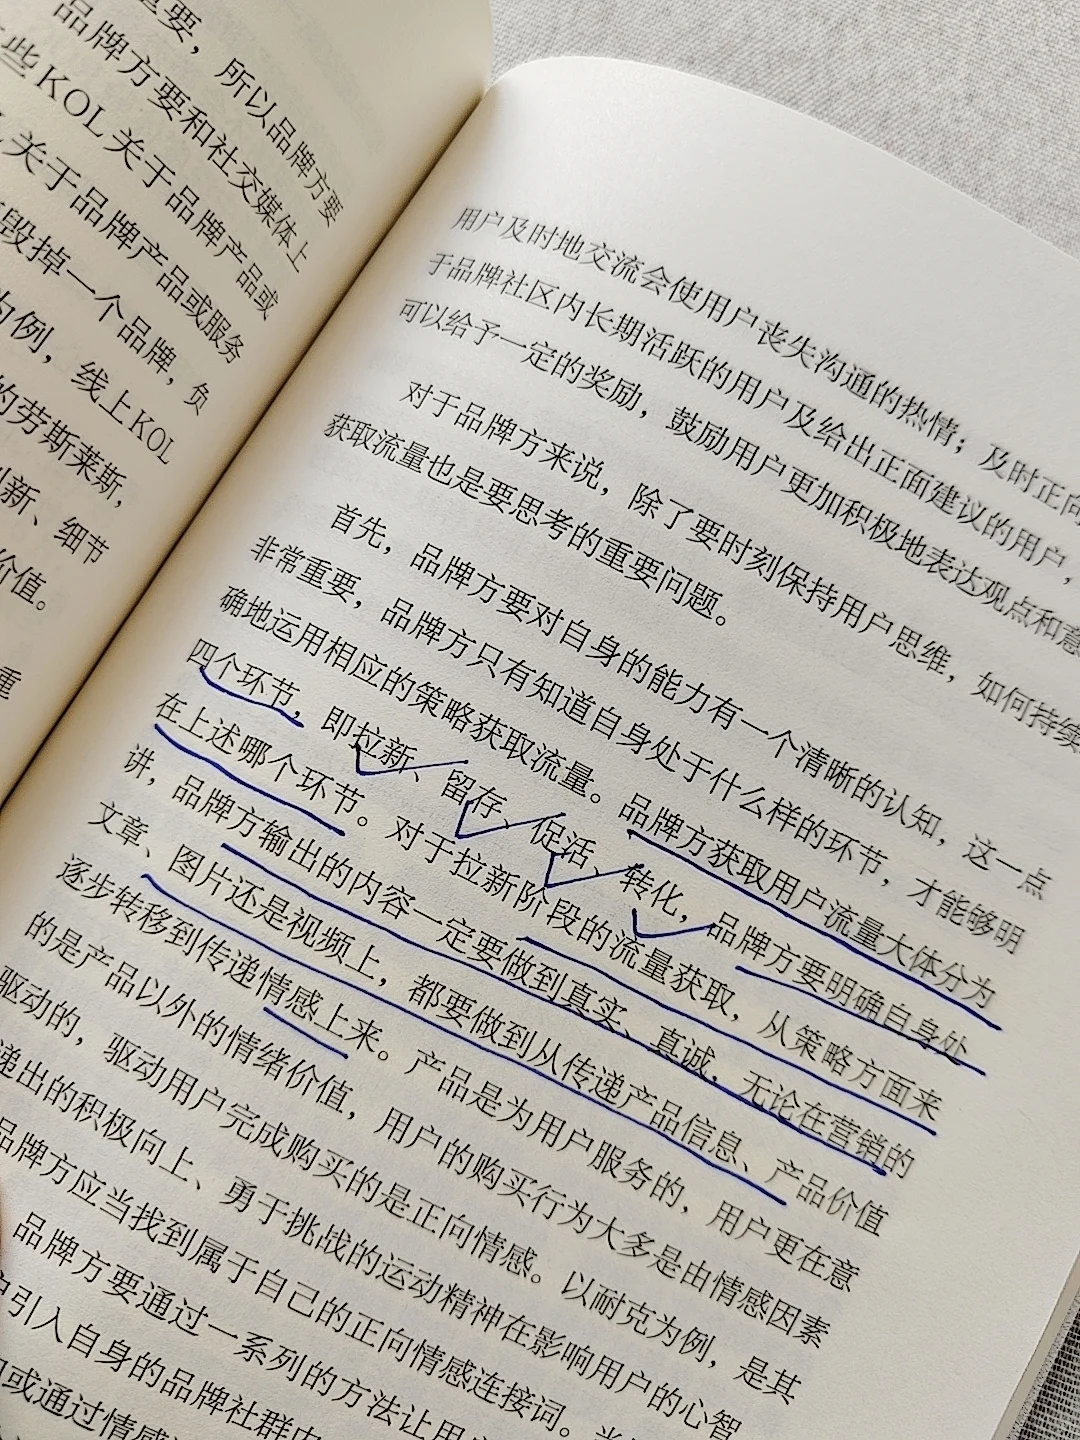 重要，所以品牌方要
品牌方要和社交媒体上
些KOL关于品牌产品或
关于品牌产品或服务
毁掉一个品牌，负
为例，线上KOL
的劳斯莱斯，
创新、细节
价值。
重
用户及时地交流会使用户丧失沟通的热情；及时正向
于品牌社区内长期活跃的用户及给出正面建议的用户，
可以给予一定的奖励，鼓励用户更加积极地表达观点和意
对于品牌方来说，除了要时刻保持用户思维，如何持续
获取流量也是要思考的重要问题。
首先，品牌方要对自身的能力有一个清晰的认知，这一点
非常重要，品牌方只有知道自身处于什么样的环节，才能够明
确地运用相应的策略获取流量。品牌方获取用户流量大体分为
四个环节，即拉新、留存、促活、转化，品牌方要明确自身处
在上述哪个环节。对于拉新阶段的流量获取，从策略方面来
讲，品牌方输出的内容一定要做到真实、真诚，无论在营销的
文章、图片还是视频上，都要做到从传递产品信息、产品价值
逐步转移到传递情感上来。产品是为用户服务的，用户更在意
的是产品以外的情绪价值，用户的购买行为大多是由情感因素
驱动的，驱动用户完成购买的是正向情感。以耐克为例，是其
递出的积极向上、勇于挑战的运动精神在影响用户的心智
品牌方应当找到属于自己的正向情感连接词。
品牌方要通过一系列的方法让用
引入自身的品牌社群内
或通过情感